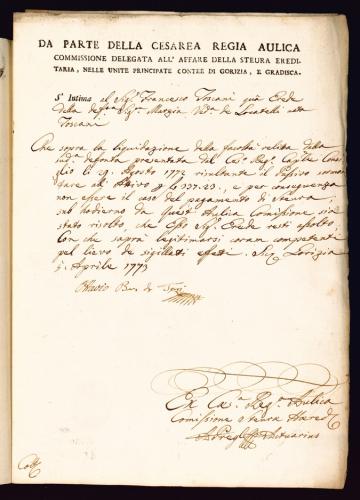 DA PARTE DELLA CESAREA REGIA AULICA
COMMISSIONE DELEGATA ALL' AFFARE DELLA STEURA EREDI-
TARIA, NELLE UNITE PRINCIPATE CONTEE DI GORIZIA, E GRADISCA.
S' Intima al Sig.r Francesco Toscani quà Erede
della def.ta Sig.ra Marzia Ved.a de Locatelli nata
Toscani
Che sopra la liquidazione della facoltà relita dalla
sud.a defonta presentata del Ces.o Reg.o Cap.le Consi-
glio li 29. Agosto 1772 risultante il Passivo sormon-
tare al Attivo p f. 337.23, e per conseguenza
non essere il caso del pagamento di Steura,
sub hodierno da quest' Aulica Comissione sia
stato risolto, che Esso Sig.r Erede resti assolto,
Con che saprà legitimarsi coram competenti
pel lievo de sigillati effetti. Gorizia
5. Aprile 1773
Ottavio Bar. de
Ex Ca.a Reg.a Aulica
Comissione Steura Hared.
Actuarius
Coll